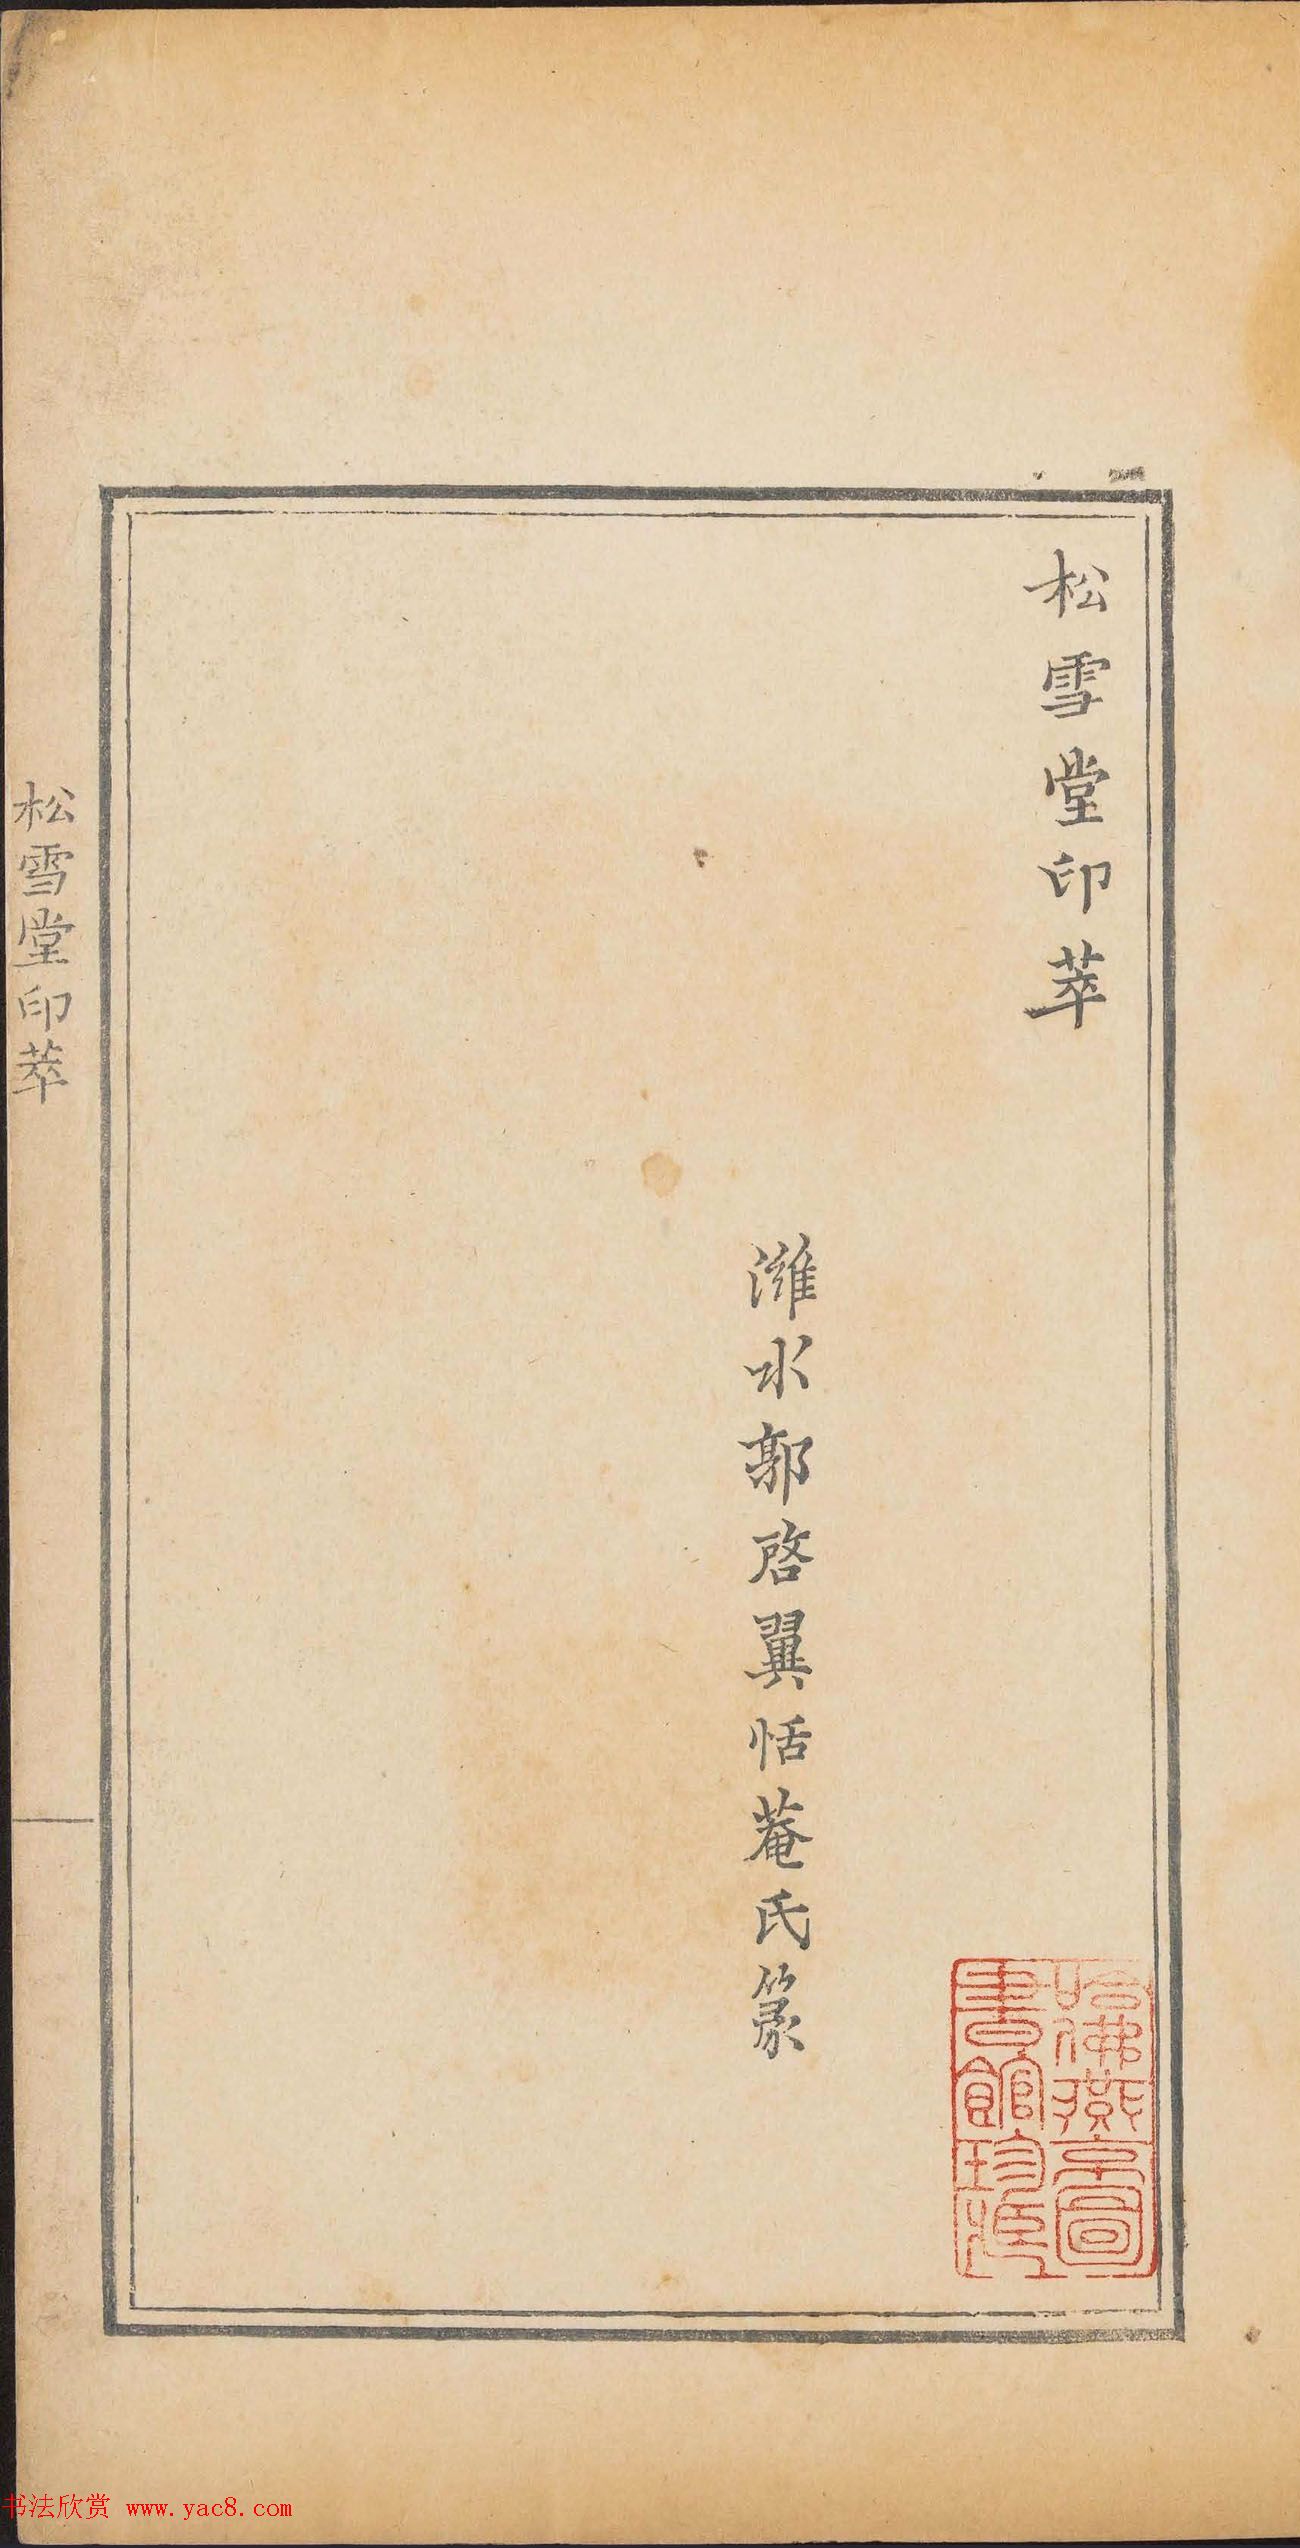 松雪堂印萃
濰水郭啓翼恬菴氏篆
哈佛燕京圖
書館珍藏
松雪堂印萃
一
书法欣赏 www.yac8.com